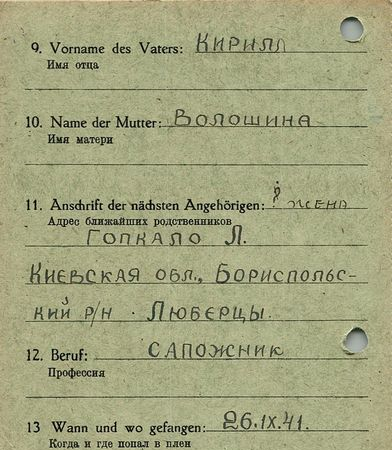 9. Vorname des Vaters: Кирилл
Имя отца
10. Name der Mutter: Волошина
Имя матери
11. Anschrift der nächsten Angehörigen: ? жена
Адрес ближайших родственников
Гопкало Л.
Киевская обл., Бориспольс-
кий р/н. Люберцы.
12. Beruf: сапожник
Профессия
13 Wann und wo gefangen: 26.IX.41.
Когда и где попал в плен